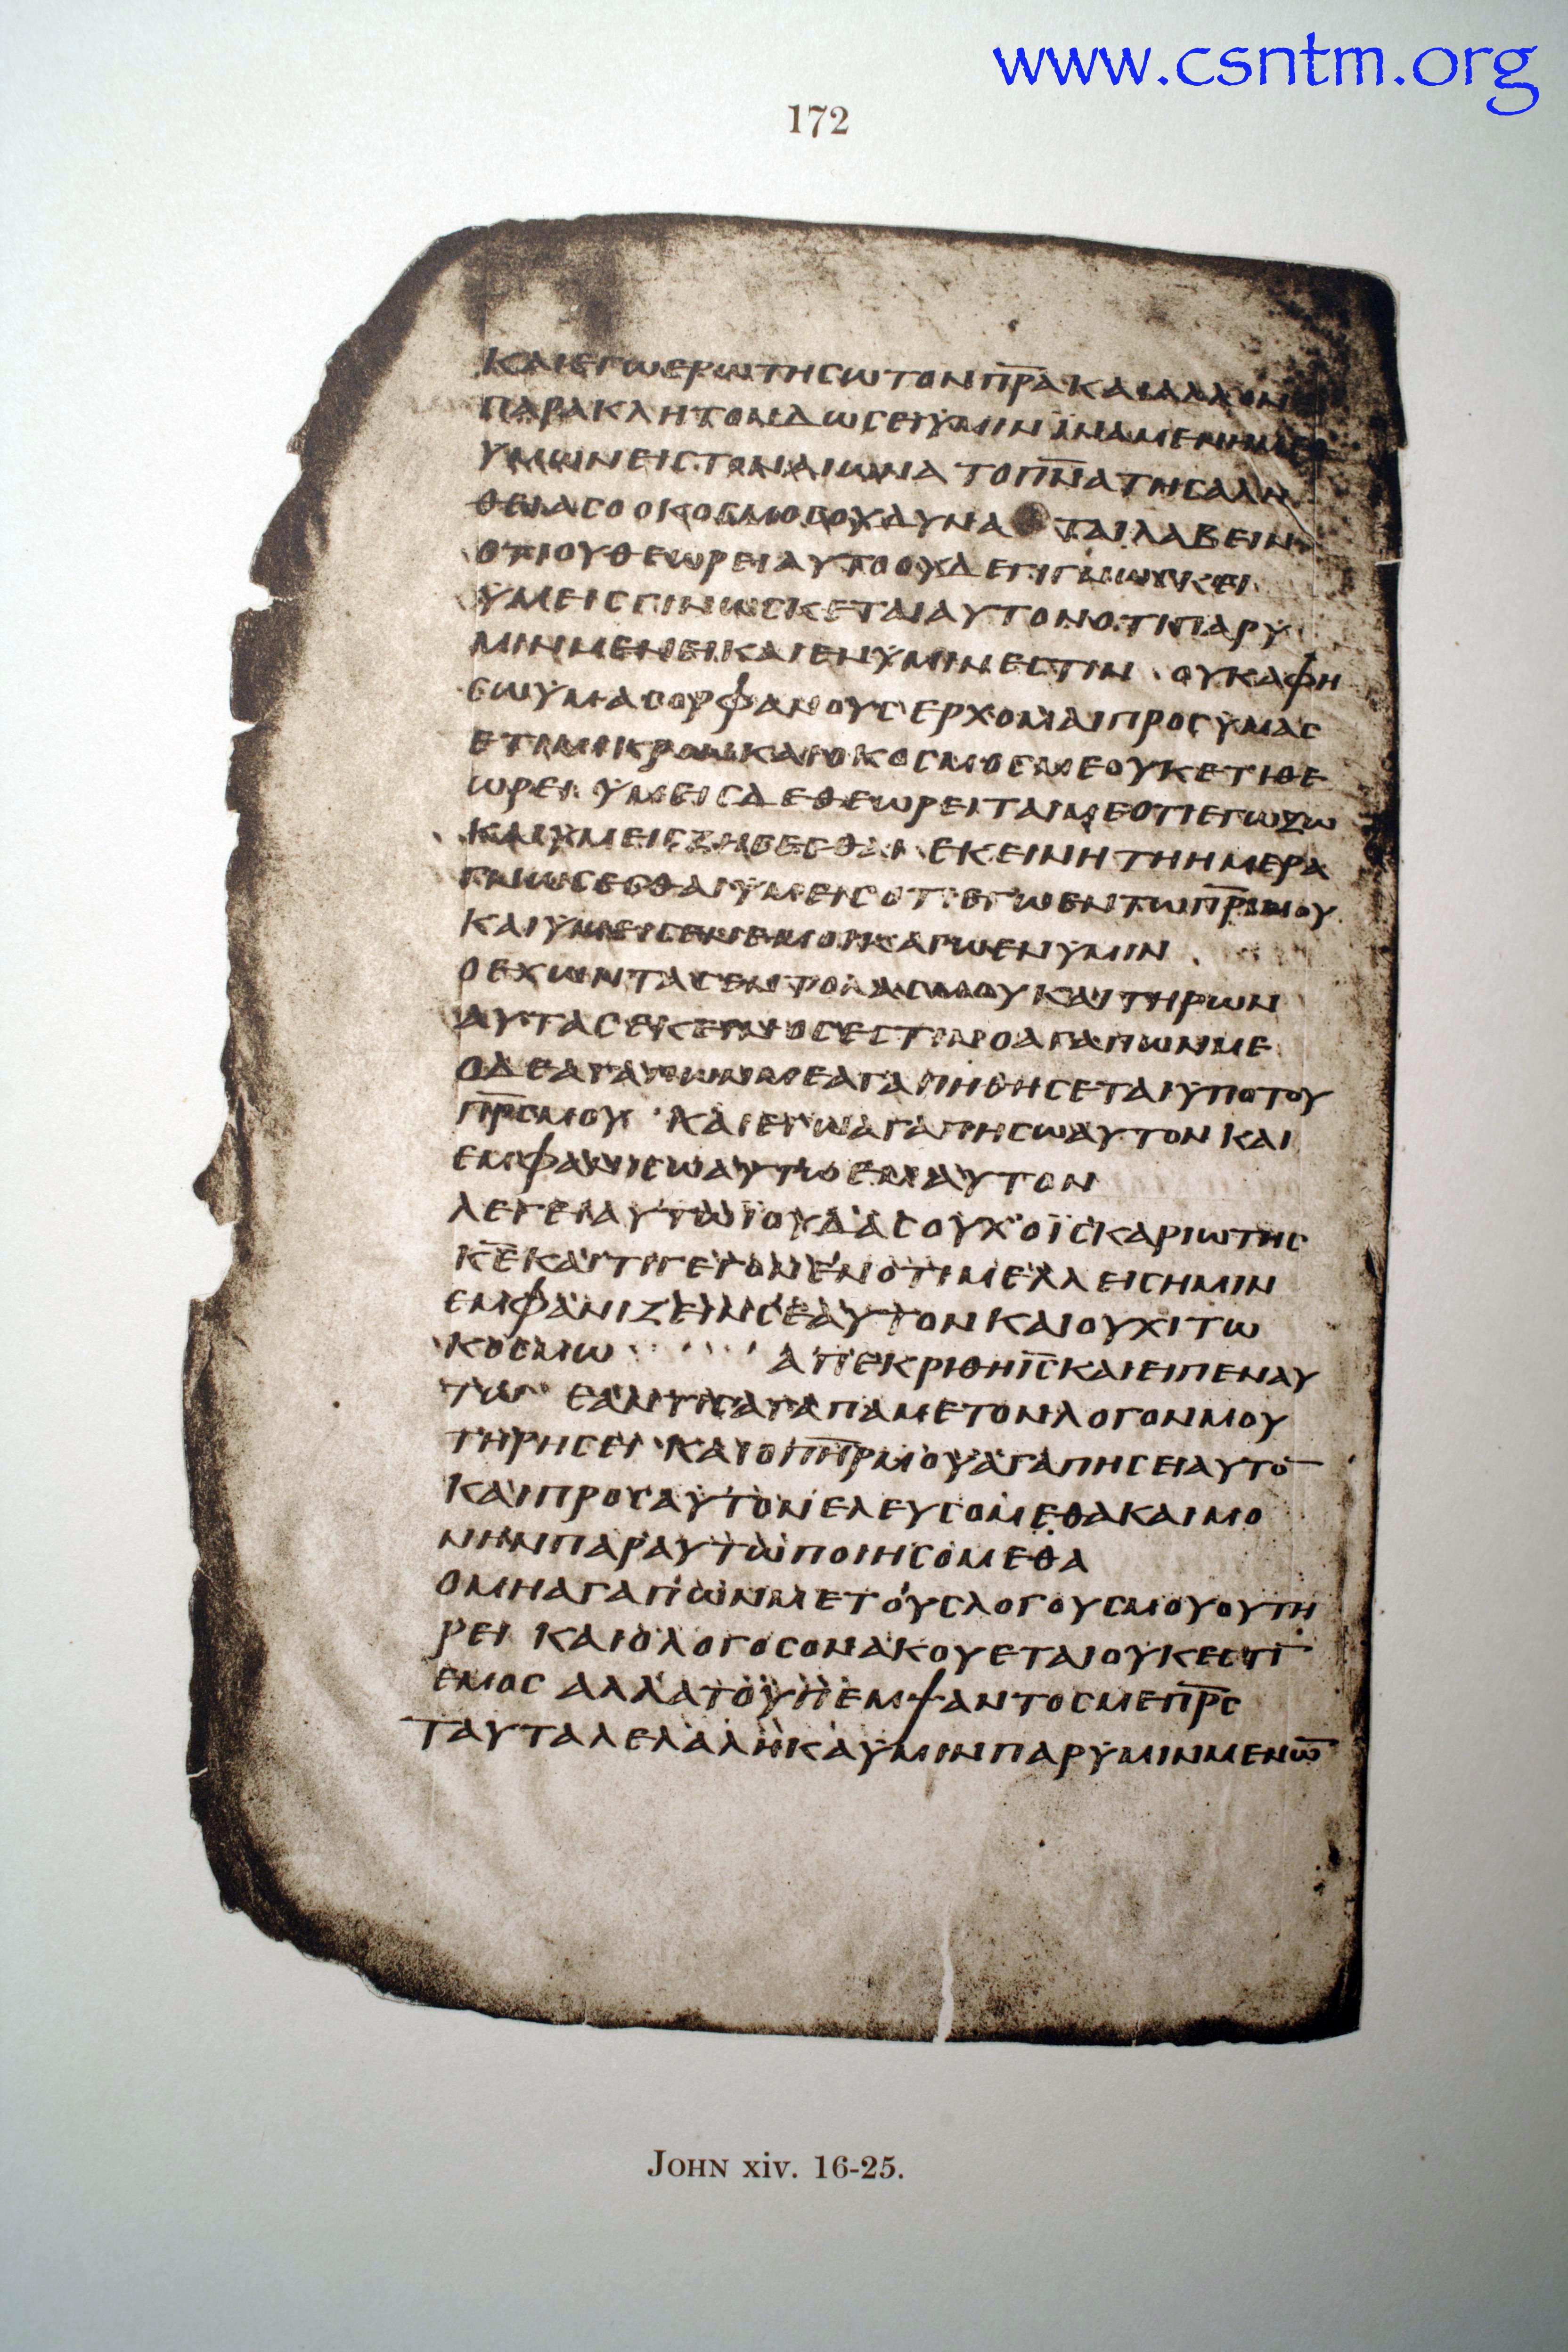 www.csntm.org
172
ΚΑΙΕΓωΕΡωΤΗCωΤΟΝΠ̅Ρ̅Α̅ΚΑΙΑΛΛΟΝ
ΠΑΡΑΚΛΗΤΟΝΔωCΕΙΫΜΙΝΪΝΑΜΕΝΗΜΕΘ
ΫΜωΝΕΙCΤΟΝΑΙωΝΑ ΤΟΠ̅Ν̅Α̅ΤΗCΑΛΗ
ΘΕΙΑCΟΟΚΟCΜΟCΟΥΔΥΝΑ ΤΑΙΛΑΒΕΙΝ
ΟΤΙΟΥΘΕωΡΕΙΑΥΤΟΟΥΔΕΓΙΓΝωCΚΕΙ
ΫΜΕΙCΓΙΝωCΚΕΤΑΙΑΥΤΟΝΟΤΙΠΑΡΫ
ΜΙΝΜΕΝΕΙΚΑΙΕΝΫΜΙΝΕCΤΙΝ ΟΥΚΑΦΗ
CωΫΜΑCΟΡΦΑΝΟΥCΕΡΧΟΜΑΙΠΡΟCΫΜΑC
ΕΤΙΜΙΚΡΟΝΚΑΙΟΚΟCΜΟCΜΕΟΥΚΕΤΙΘΕ
ωΡΕΙ ΫΜΕΙCΔΕΘΕωΡΕΙΤΑΙΜΕΟΤΙΕΓωΖω
ΚΑΙΫΜΕΙCΖΗCΕCΘΑΙ ΕΚΕΙΝΗΤΗΗΜΕΡΑ
ΓΝωCΕCΘΑΙΫΜΕΙCΟΤΙΕΓωΕΝΤωΠ̅Ρ̅Ι̅ΜΟΥ
ΚΑΙΫΜΕΙCΕΝΕΜΟΙΚΑΓωΕΝΫΜΙΝ
ΟΕΧωΝΤΑCΕΝΤΟΛΑCΜΟΥΚΑΙΤΗΡωΝ
ΑΥΤΑCΕΚΕΙΝΟCΕCΤΙΝΟΑΓΑΠωΝΜΕ
ΟΔΕΑΓΑΠωΝΜΕΑΓΑΠΗΘΗCΕΤΑΙΫΠΟΤΟΥ
Π̅Ρ̅C̅ΜΟΥ ΚΑΙΕΓωΑΓΑΠΗCωΑΥΤΟΝΚΑΙ
ΕΜΦΑΝΙCωΑΥΤωΕΜΑΥΤΟΝ
ΛΕΓΕΙΑΥΤωΪΟΥΔΑCΟΥΧΟΪCΚΑΡΙωΤΗC
Κ̅Ε̅ΚΑΙΤΙΓΕΓΟΝΕΝΟΤΙΜΕΛΛΕΙCΗΜΙΝ
ΕΜΦΑΝΙΖΕΙΝCΕΑΥΤΟΝΚΑΙΟΥΧΙΤω
ΚΟCΜω ΑΠΕΚΡΙΘΗΙ̅C̅ΚΑΙΕΙΠΕΝΑΥ
Τω ΕΑΝΤΙCΑΓΑΠΑΜΕΤΟΝΛΟΓΟΝΜΟΥ
ΤΗΡΗCΕΙ ΚΑΙΟΠ̅Η̅Ρ̅ΜΟΥΑΓΑΠΗCΕΙΑΥΤΟ̅
ΚΑΙΠΡΟCΑΥΤΟΝΕΛΕΥCΟΜΕΘΑΚΑΙΜΟ
ΝΗΝΠΑΡΑΥΤωΠΟΙΗCΟΜΕΘΑ
ΟΜΗΑΓΑΠωΝΜΕΤΟΥCΛΟΓΟΥCΜΟΥΟΥΤΗ
ΡΕΙ ΚΑΙΟΛΟΓΟCΟΝΑΚΟΥΕΤΑΙΟΥΚΕCΤΙ̅
ΕΜΟC ΑΛΛΑΤΟΥΠΕΜΨΑΝΤΟCΜΕΠ̅Ρ̅C̅
ΤΑΥΤΑΛΕΛΑΛΗΚΑΫΜΙΝΠΑΡΫΜΙΝΜΕΝω̅
JOHN xiv. 16-25.